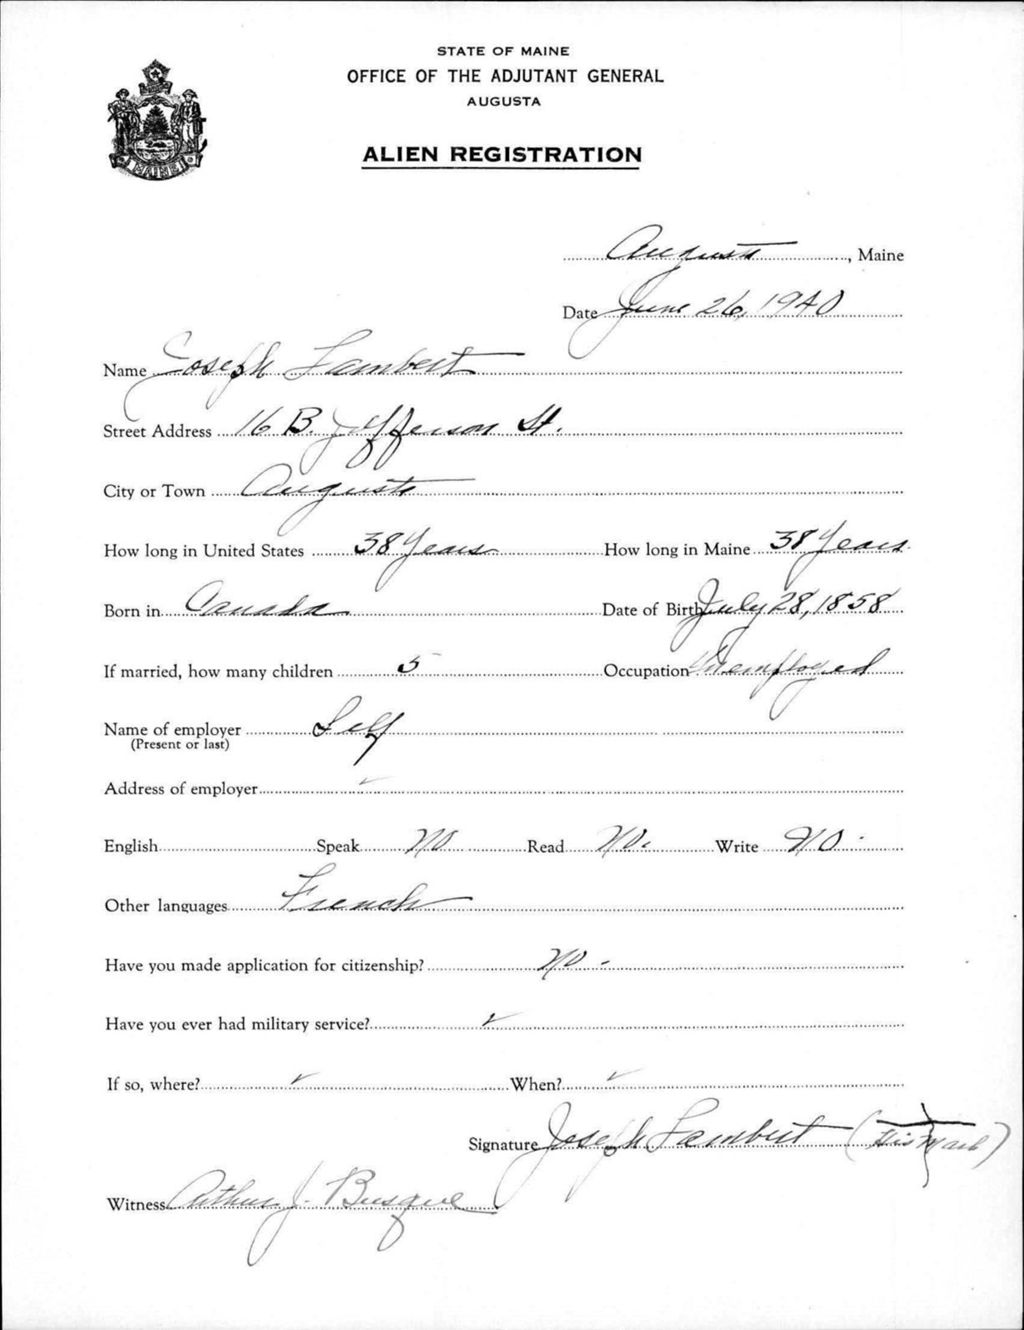 STATE OF MAINE
OFFICE OF THE ADJUTANT GENERAL
AUGUSTA
MAINE
ALIEN REGISTRATION
Augusta, Maine
Date June 26, 1940
Name Joseph Lambert
Street Address 16 B. Jefferson St.
City or Town Augusta
How long in United States 38 Years How long in Maine 38 Years
Born in Canada Date of Birth July 28, 1858
If married, how many children 5 Occupation Unemployed
Name of employer Self
(Present or last)
Address of employer
English Speak No Read No. Write No.
Other languages French
Have you made application for citizenship? No -
Have you ever had military service? ✓
If so, where? ✓ When? ✓
Signature Joseph Lambert (His Mark)
Witness Arthur J. Busque